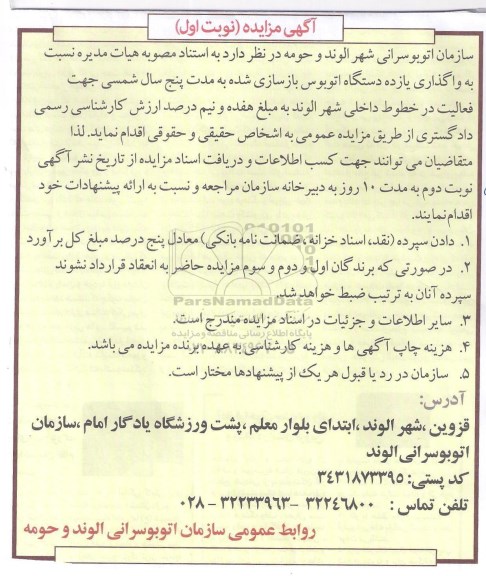 آگهی مزایده (نوبت اول)
سازمان اتوبوسرانی شهر الوند و حومه در نظر دارد به استناد مصوبه هیات مدیره نسبت
به واگذاری یازده دستگاه اتوبوس بازسازی شده به مدت پنج سال شمسی جهت
فعالیت در خطوط داخلی شهر الوند به مبلغ هفده و نیم درصد ارزش کارشناسی رسمی
دادگستری از طریق مزایده عمومی به اشخاص حقیقی و حقوقی اقدام نماید. لذا
متقاضیان می توانند جهت کسب اطلاعات و دریافت اسناد مزایده از تاریخ نشر آگهی
نوبت دوم به مدت ۱۰ روز به دبیرخانه سازمان مراجعه و نسبت به ارائه پیشنهادات خود
اقدام نمایند.
۱. دادن سپرده (نقد، اسناد خزانه، ضمانت نامه بانکی) معادل پنج درصد مبلغ کل برآورد
۲. در صورتی که برندگان اول و دوم و سوم مزایده حاضر به انعقاد قرارداد نشوند
سپرده آنان به ترتیب ضبط خواهد شد.
ParsNamadData
۳. سایر اطلاعات و جزئیات در اسناد مزایده مندرج است.
پایگاه اطلاع رسانی مناقصه و مزایده
۴. هزینه چاپ آگهی ها و هزینه کارشناسی به عهده برنده مزایده می باشد.
۵. سازمان در رد یا قبول هر یک از پیشنهادها مختار است.
آدرس:
قزوین، شهر الوند، ابتدای بلوار معلم، پشت ورزشگاه یادگار امام، سازمان
اتوبوسرانی الوند
کد پستی: ۳۴۳۱۸۷۳۳۹۵
تلفن تماس: ۳۲۲۴۶۸۰۰ – ۳۲۲۳۳۹۶۳ – ۰۲۸
روابط عمومی سازمان اتوبوسرانی الوند و حومه